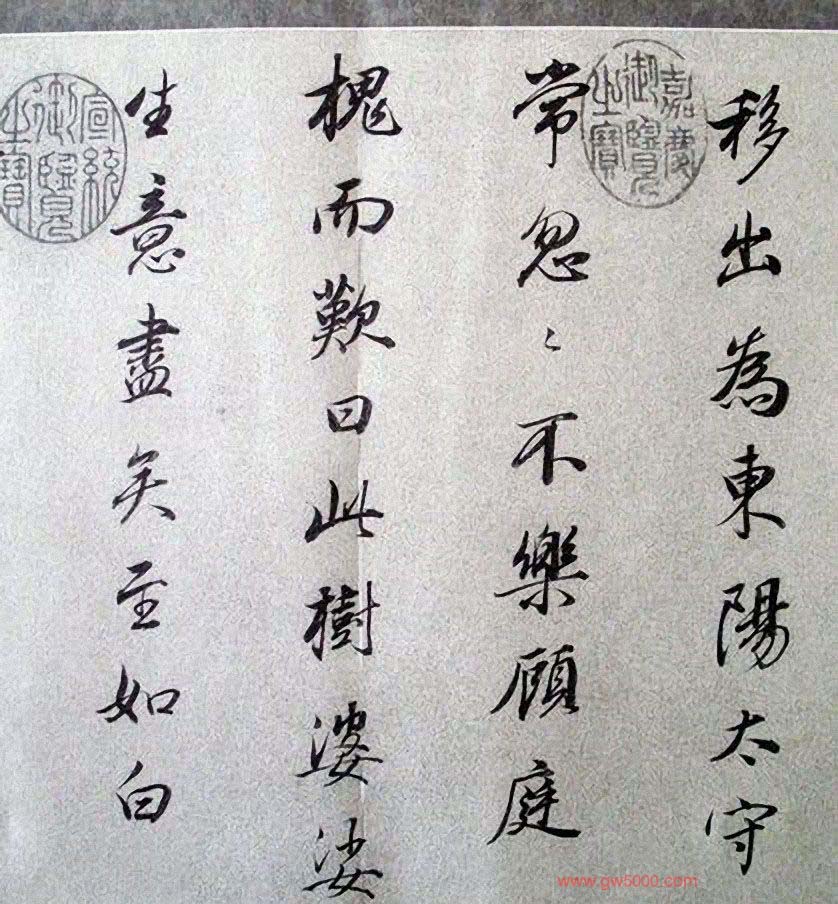 移出為東陽太守
常忽〻不樂顧庭
槐而歎曰此樹婆娑
生意盡矣至如白
嘉慶御覽之寶
宣統御覽之寶
www.gw5000.com